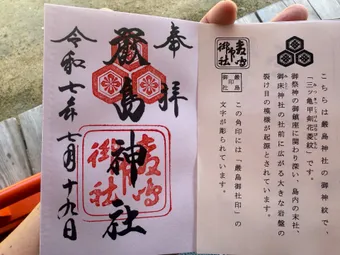 奉拝
厳島神社
令和七年七月十九日
こちらは厳島神社の御神紋で、
「三ツ亀甲花菱紋」です。
御祭神の御鎮座に関わり深い、島内の末社、
御床神社の社前に広がる大きな岩盤の
裂け目の模様が起源とされています。
この角印には「厳島御社印」の
文字が彫られています。